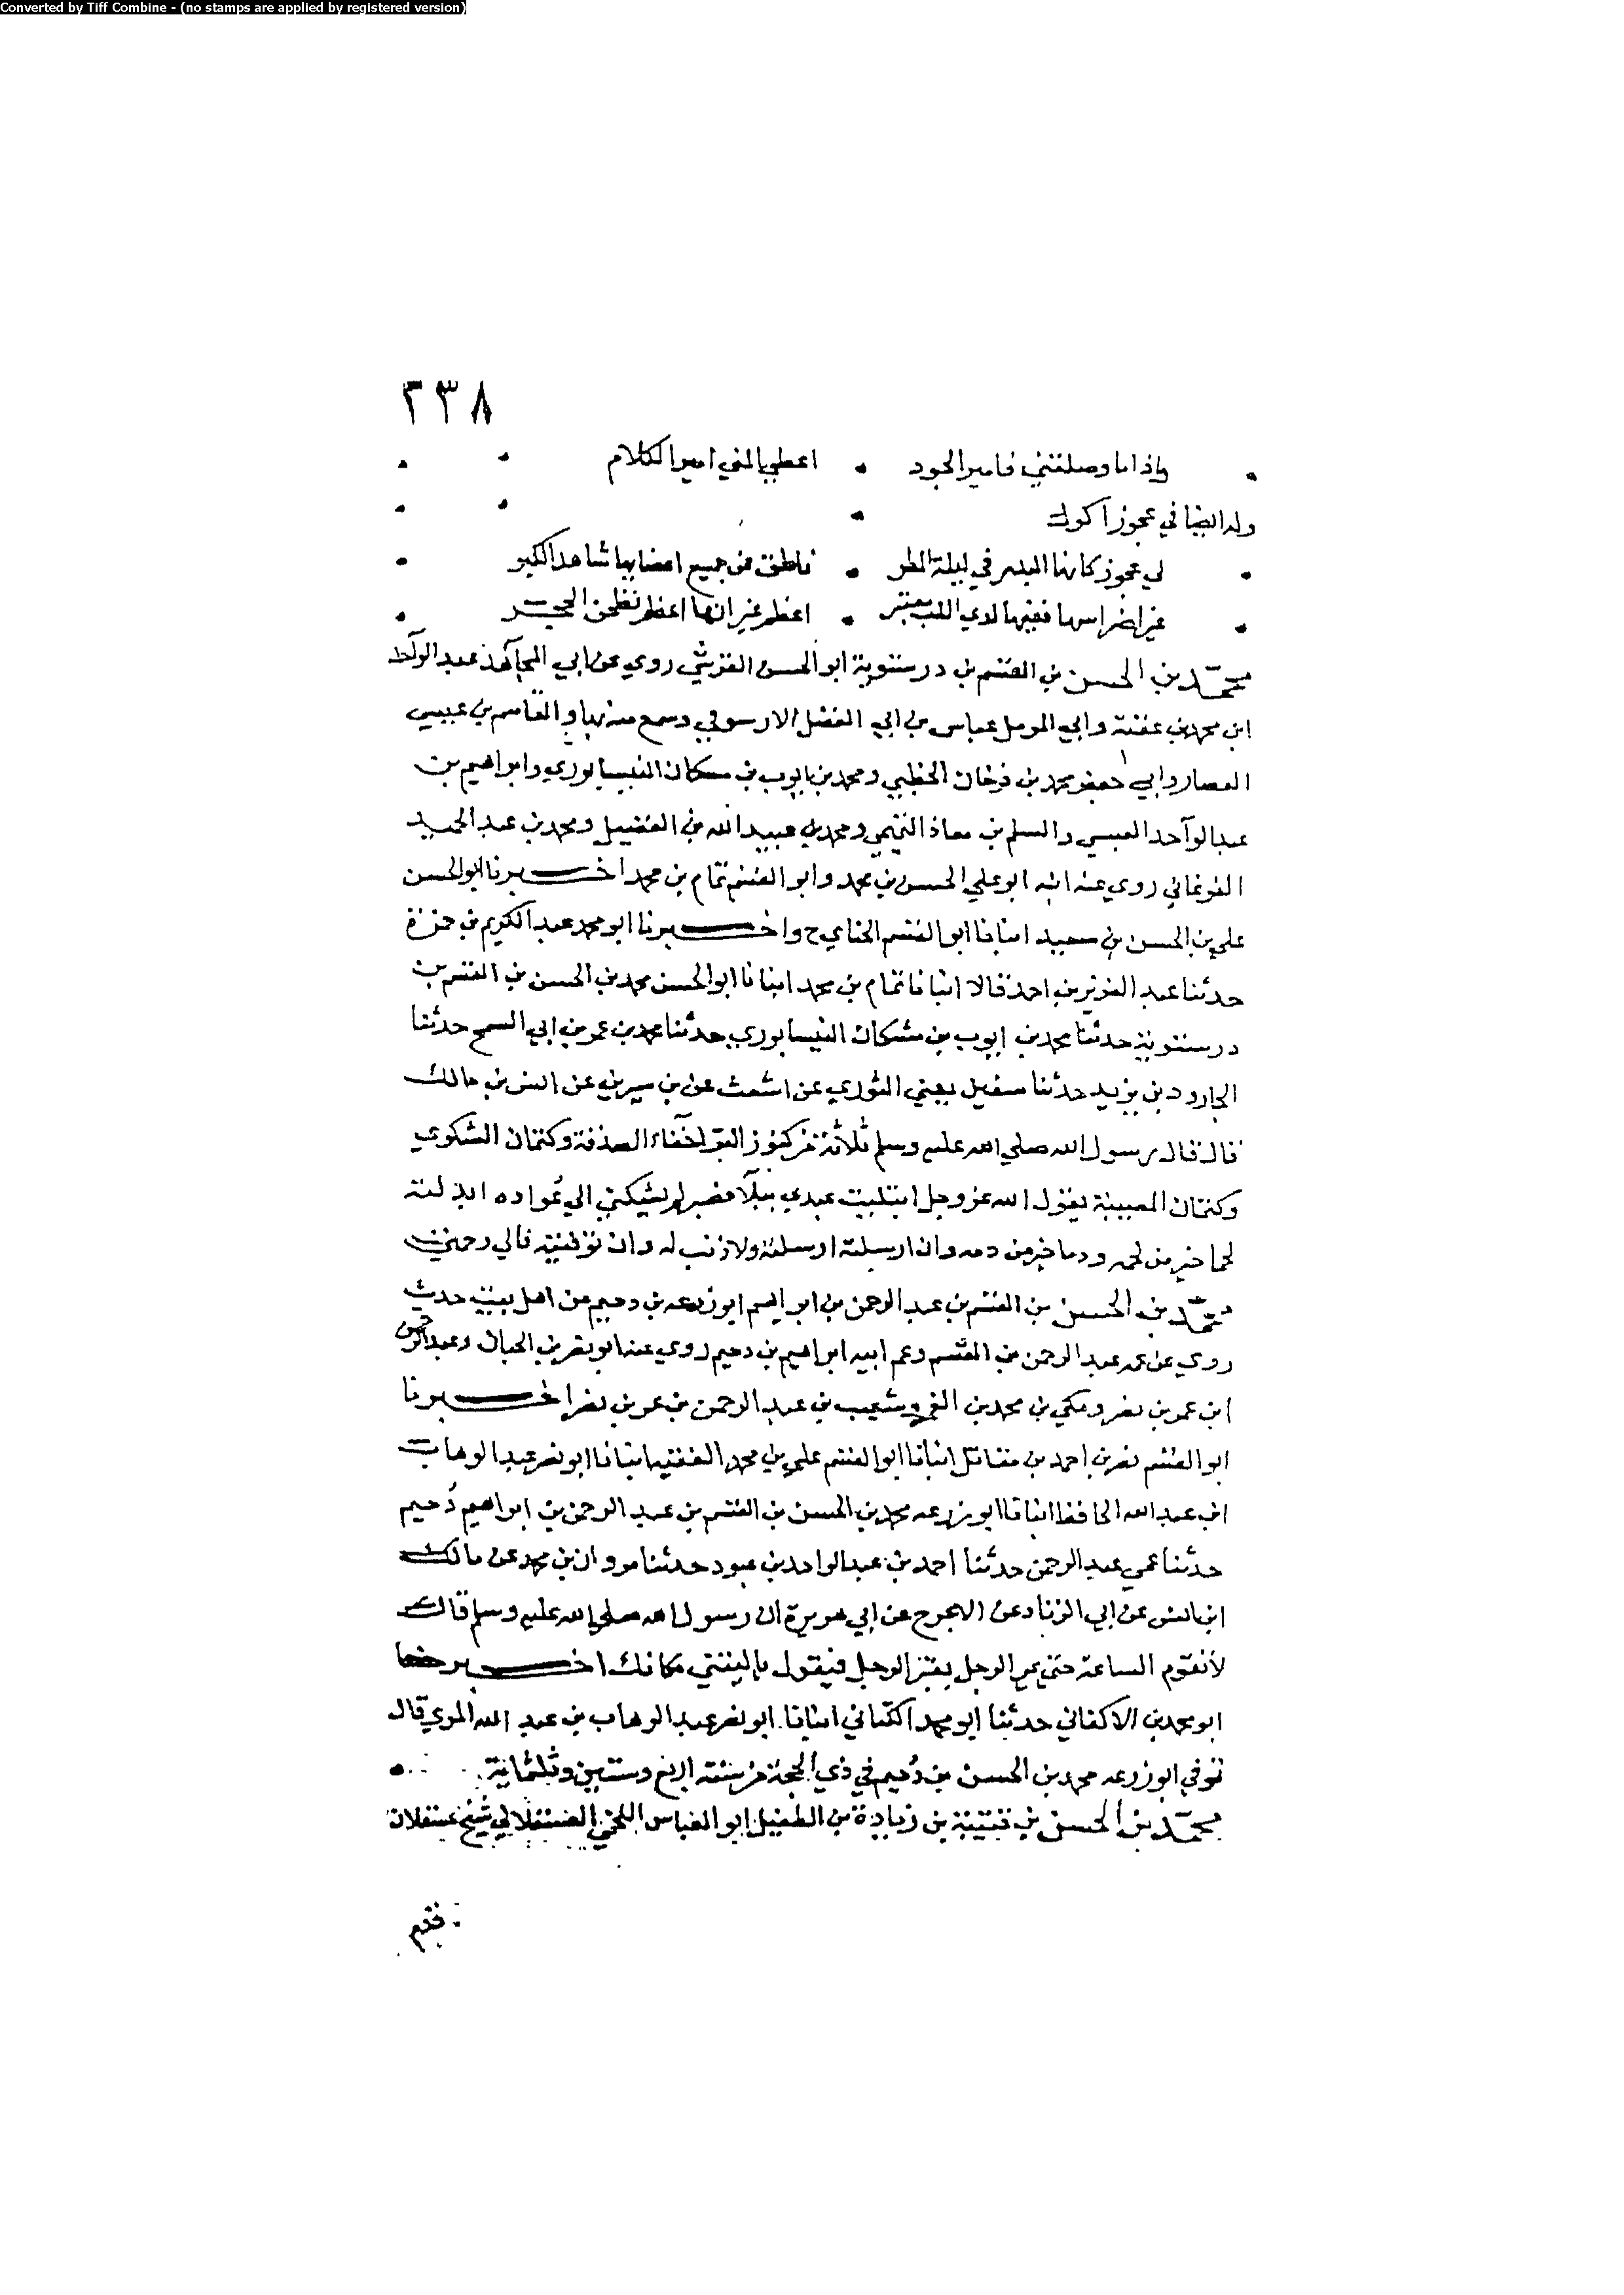 Converted by Tiff Combine - (no stamps are applied by registered version)
٢٣٨
واذا ما وصلتني فامير الجود • اعطي المني امير الكلام
وله ايضا في عجوز اكول
لي عجوز كانها البدر في ليلة المطر • ناطق من جميع اعضايها شاهد الكبر
غير اضراسها ففيها لدي اللب معتبر • اعظم غير انها اعظم تطحن الحجر
محمد بن الحسن بن القسم بن درستوية ابو الحسن القرشي روي عن ابي المجاهد عبد الواحد
ابن محمد بن عفنة وابي المومل عباس بن ابي الفضل الارسوفي وسمع منه بها والقاسم بن عيسي
العصار وابي جعفر محمد بن فرخان الحظبي ومحمد بن ايوب بن مسكان النيسابوري وابراهيم بن
عبد الواحد العبسي والسلم بن معاذ التميمي ومحمد بن عبيد الله بن الفضيل ومحمد بن عبد الحميد
الفرغاني روي عنه ابنه ابو علي الحسن بن محمد وابو القسم تمام بن محمد اخبرنا ابو الحسن
علي بن الحسن بن سعيد انبانا ابو القسم الحناي ح واخبرنا ابو محمد عبد الكريم بن حمزة
حدثنا عبد العزيز بن احمد قالا انبانا تمام بن محمد انبانا ابو الحسن محمد بن الحسن بن القسم بن
درستوية حدثنا محمد بن ايوب بن مشكان النيسابوري حدثنا محمد بن عمر بن ابي السمح حدثنا
الجارود بن يزيد حدثنا سفيل يعني الثوري عن اشعث عن بن سيرين عن انس بن مالك
قال قال رسول الله صلي الله عليه وسلم ثلاثة من كنوز البر اخفاء الصدقة وكتمان الشكوي
وكتمان المصيبة يقول الله عز وجل ابتليت عبدي ببلآ فصبر لم يشكني الي عواده ابدلته
لحما خير من لحمه ودما خير من دمه وان ارسلته ارسلته ولا ذنب له وان توفيته فالي رحمتي
محمد بن الحسن بن القسم بن عبد الرحمن بن ابراهيم ابو زرعه بن دحيم من اهل بيت حديث
روي عن عمه عبد الرحمن بن القسم وعم ابيه ابراهيم بن دحيم روي عنه ابو نصر بن الجبان وعبد الرحمن
ابن عمر بن نصر ومكي بن محمد بن الغمر وشعيب بن عبد الرحمن بن عمر بن نصر اخبرنا
ابو القسم نصر بن احمد بن مقاتل انبانا ابو القسم علي بن محمد الفقيه انبانا ابو نصر عبد الوهاب
ابن عبد الله الحافظ انبانا ابو زرعه محمد بن الحسن بن القسم بن عبد الرحمن بن ابراهيم دُحيم
حدثنا عمي عبد الرحمن حدثنا احمد بن عبد الواحد بن عبود حدثنا مروان بن محمد عن مالك
ابن انس عن ابي الزناد عن الاعرج عن ابي هريرة ان رسول الله صلي الله عليه وسلم قال
لا تقوم الساعة حتي يمر الرجل بقبر الرجل فيقول ياليتني مكانك اخبرنا
ابو محمد بن الاكفاني حدثنا ابو محمد الكتاني انبانا ابو نصر عبد الوهاب بن عبد الله المري قال
توفي ابو زرعه محمد بن الحسن بن دُحيم في ذي الحجة من سنة اربع وستين وثلثماية
محمد بن الحسن بن قتيبة بن زيادة بن الطفيل ابو العباس اللخمي العسقلاني شيخ عسقلان
قدم